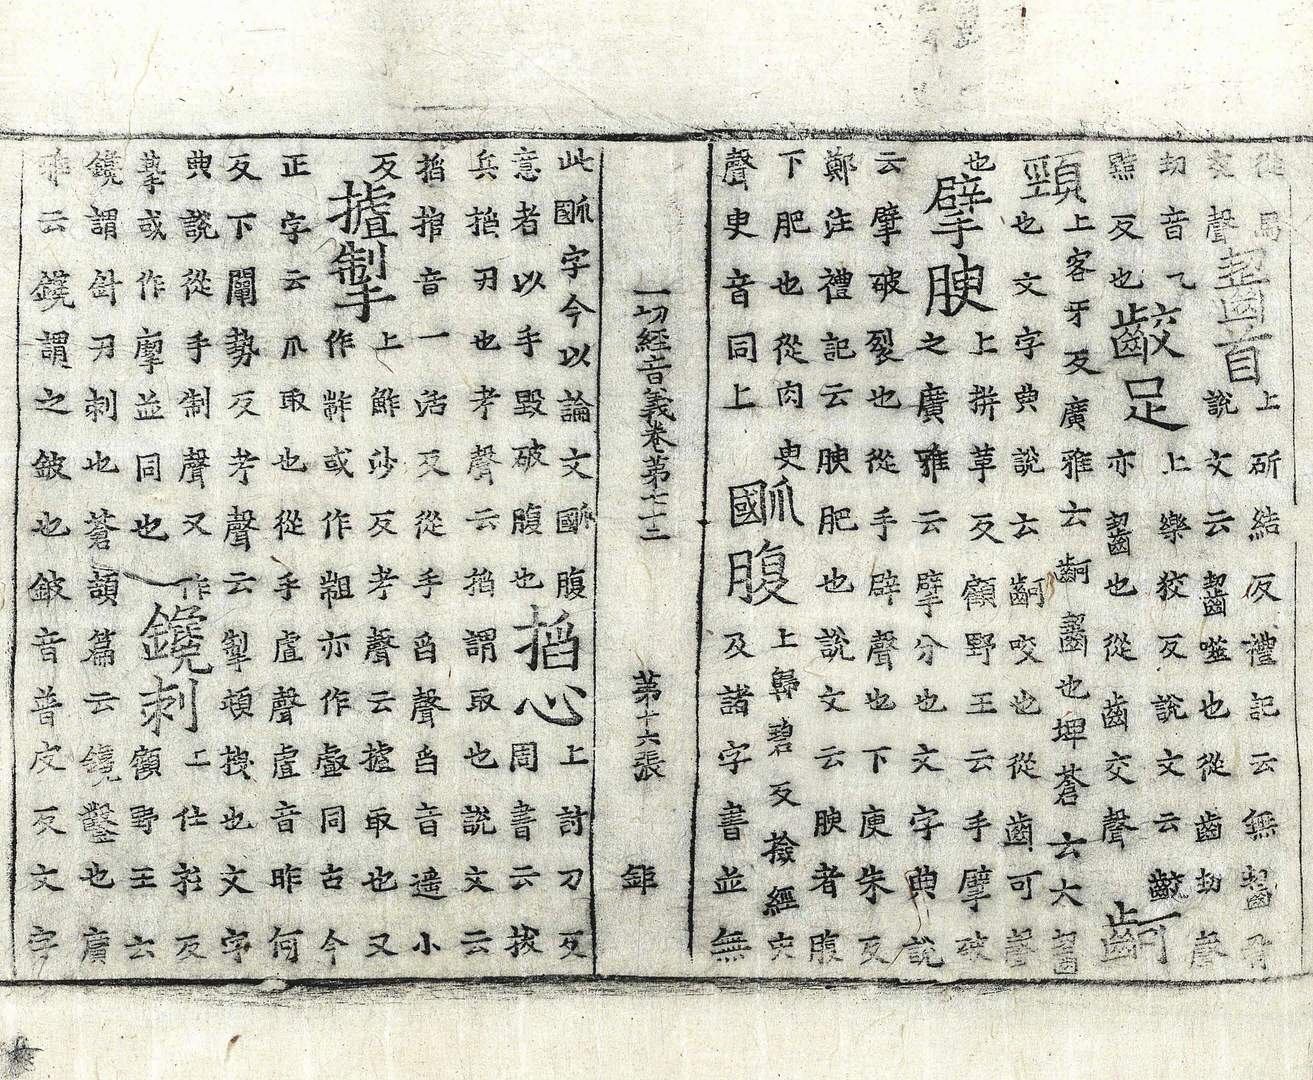 從局
交聲
齧首
上斫結反禮記云無齧骨
說文云齧噬也從齒㓞聲
㓞音乁
黠反也
齩足
上樂狡反說文云齩
亦齧也從齒交聲
䶗
頸
上客牙反廣雅云䶗齧也埤蒼云大齧
也文字典說云䶗咬也從齒可聲
也
擘腴
上拼草反顧野王云手擘破
之廣雅云擘分也文字典說
云擘破裂也從手辟聲也下庾朱反
鄭注禮記云腴肥也說文云腴者腹
下肥也從肉臾
聲臾音同上
⿰國爪腹
上歸碧反撿經宍
及諸字書並無
一切經音義卷第七十三 第十六張 鉅
此⿰國爪字今以論文⿰國爪腹
意者以手毀破腹也
搯心
上討刀反
周書云拔
兵搯刃也考聲云搯謂取也說文云
搯捾音一活反從手舀聲舀音遥小
反
摣掣
上鮓沙反考聲云摣取也又
作齚或作䎬亦作虘同古今
正字云爪取也從手虘聲虘音昨何
反下闡勢反考聲云掣頓拽也文字
典說從手制聲又作
摯或作㨖並同也
鑱刺
上仕衫反
顧野王云
鑱謂針刃刺也蒼頡篇云鑱鑿也廣
雅云鑱謂之鈹也鈹音普皮反文字